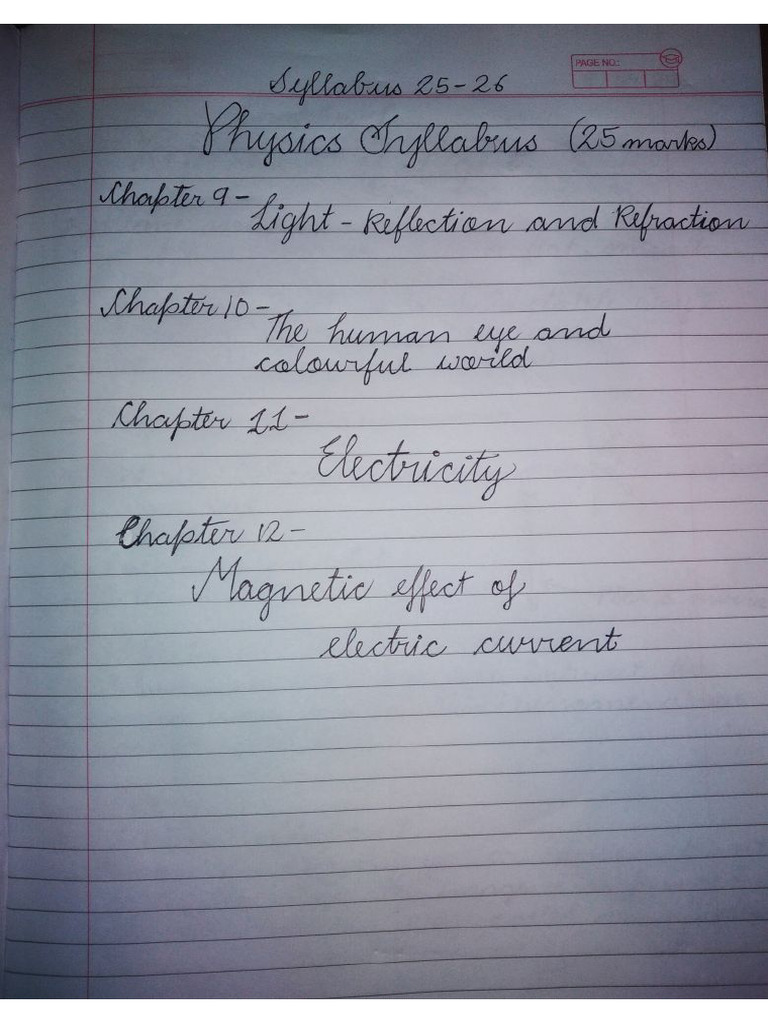 PAGE NO.:
Syllabus 25-26
Physics Syllabus (25 marks)
Chapter 9-
Light - Reflection and Refraction
Chapter 10-
The human eye and
colourful world
Chapter 11-
Electricity
Chapter 12-
Magnetic effect of
electric current